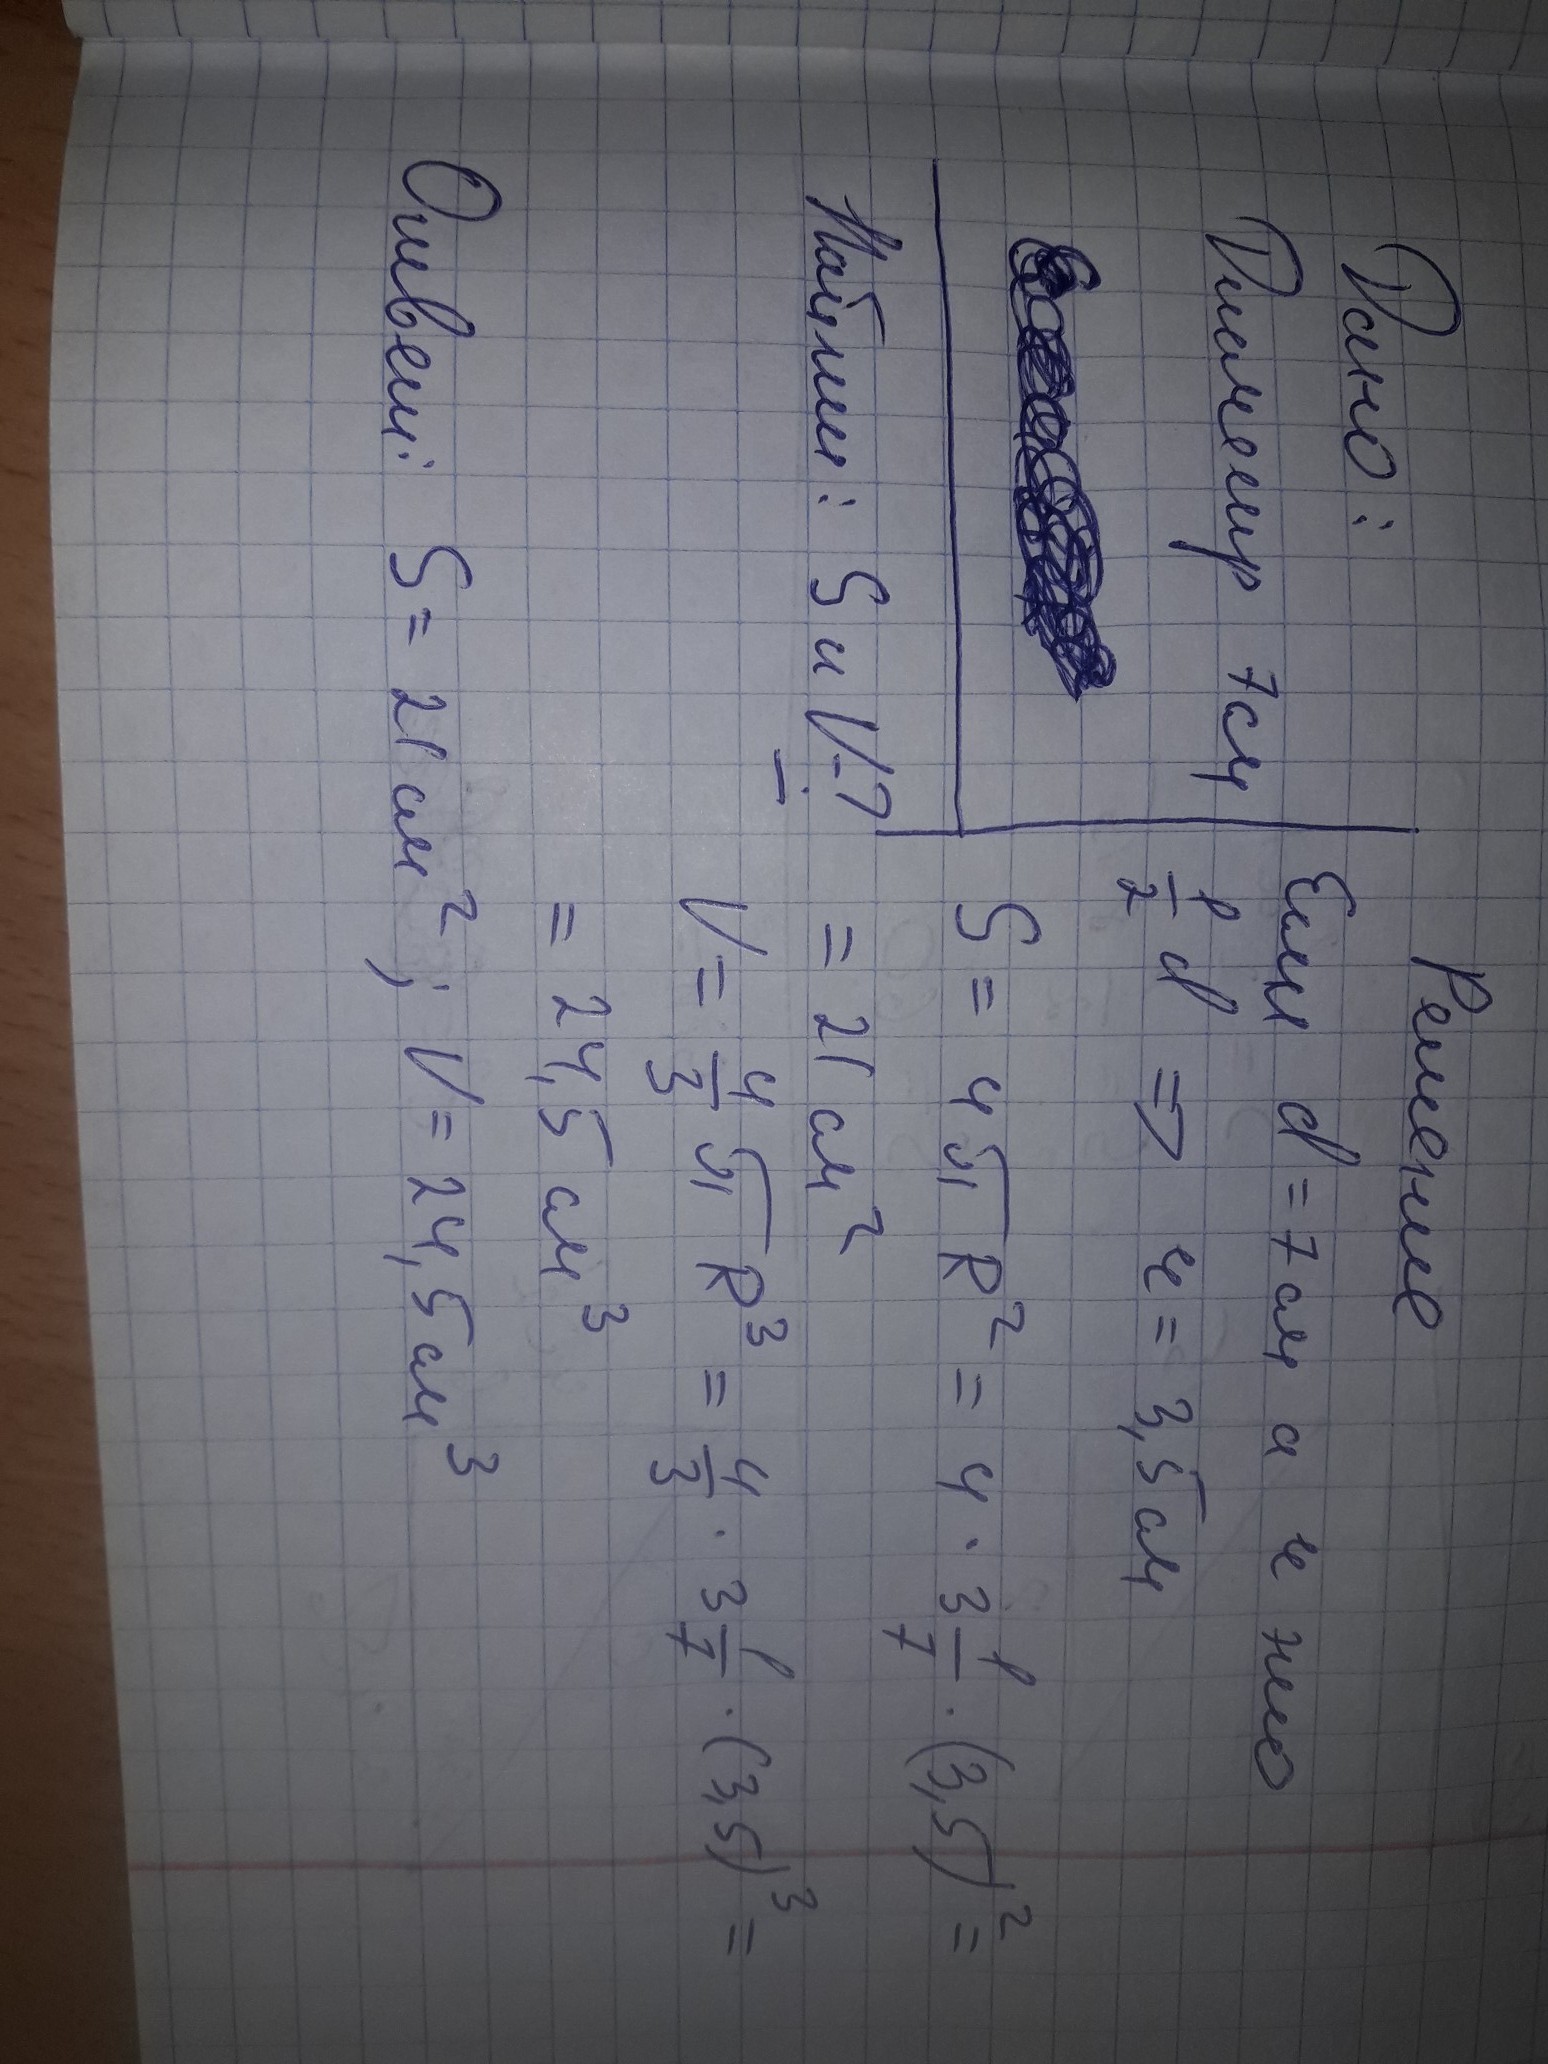 Дано:
Диаметр 7см
Найти: S и V-?
Решение
Если d=7см а r это
1/2 d ⇒ r = 3,5см
S = 4πR² = 4 · 3 1/7 · (3,5)² =
= 21 см²
V = 4/3 πR³ = 4/3 · 3 1/7 · (3,5)³ =
= 24,5 см³
Ответ: S = 21 см²; V = 24,5 см³